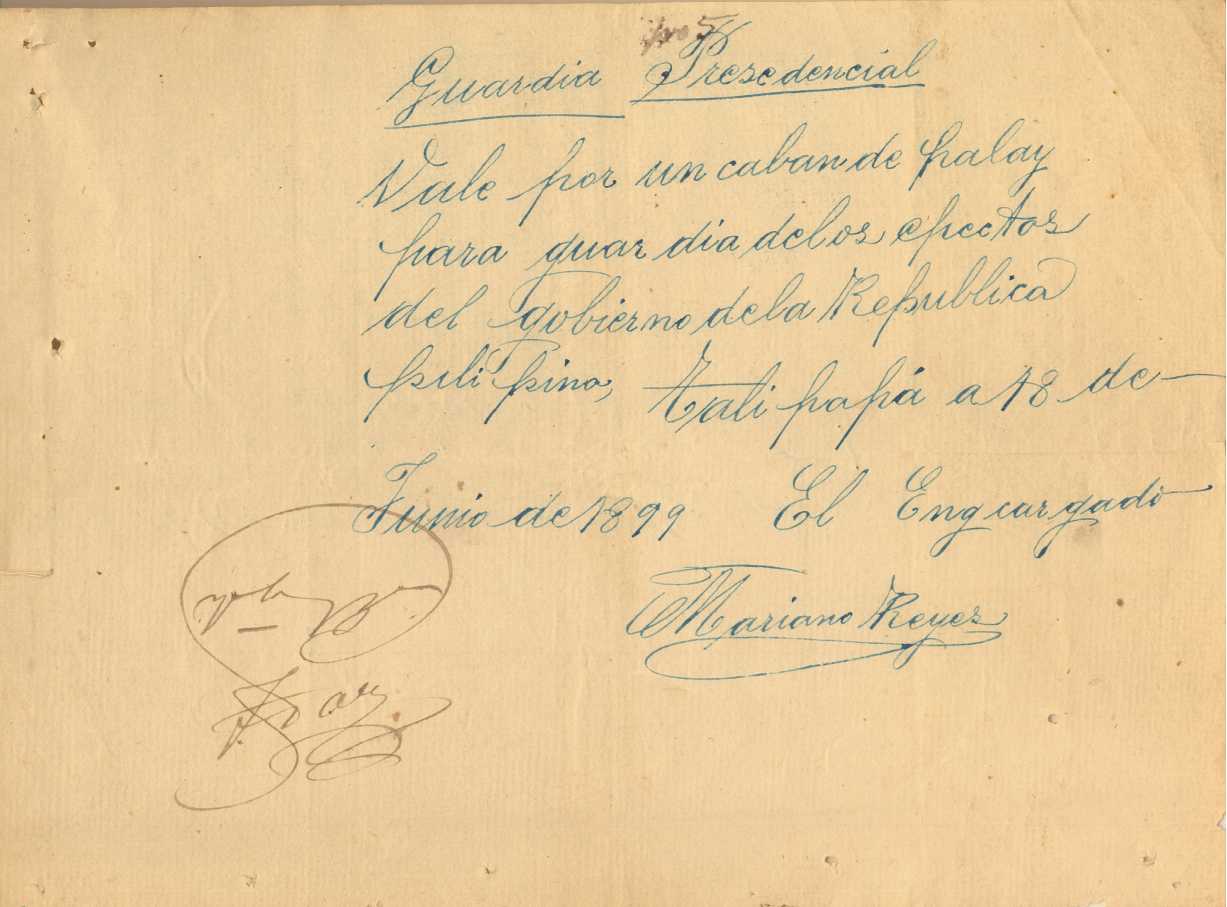 Guardia Presedencial
Vale por un caban de palay
para guardia delos epectos
del gobierno dela Republica
pilipino, Talipapá a 18 de
Junio de 1899 El Engcargado
Mariano Reyes
Vto Bno